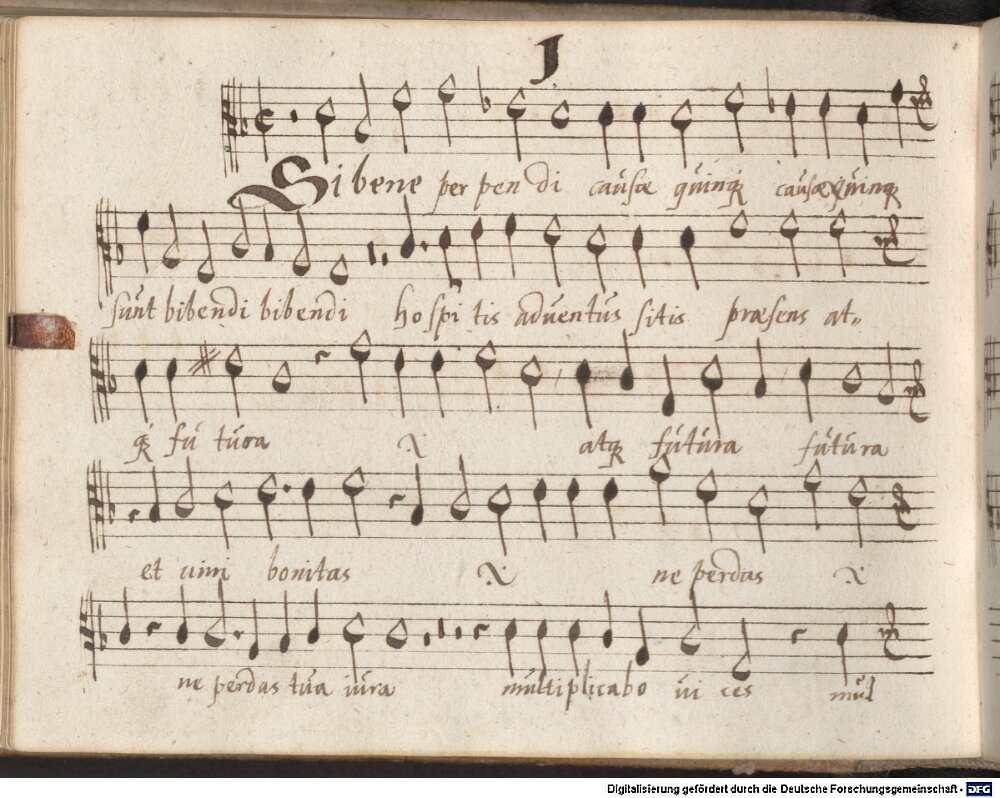 J
Si bene per pen di causæ quinq causæ quinq
sunt bibendi bibendi ho spi tis aduentus sitis præsens at„
q fu tura atq futura futura
et uini bonitas ne perdas
ne perdas tua iura multiplicabo ui ces mul
Digitalisierung gefördert durch die Deutsche Forschungsgemeinschaft - DFG